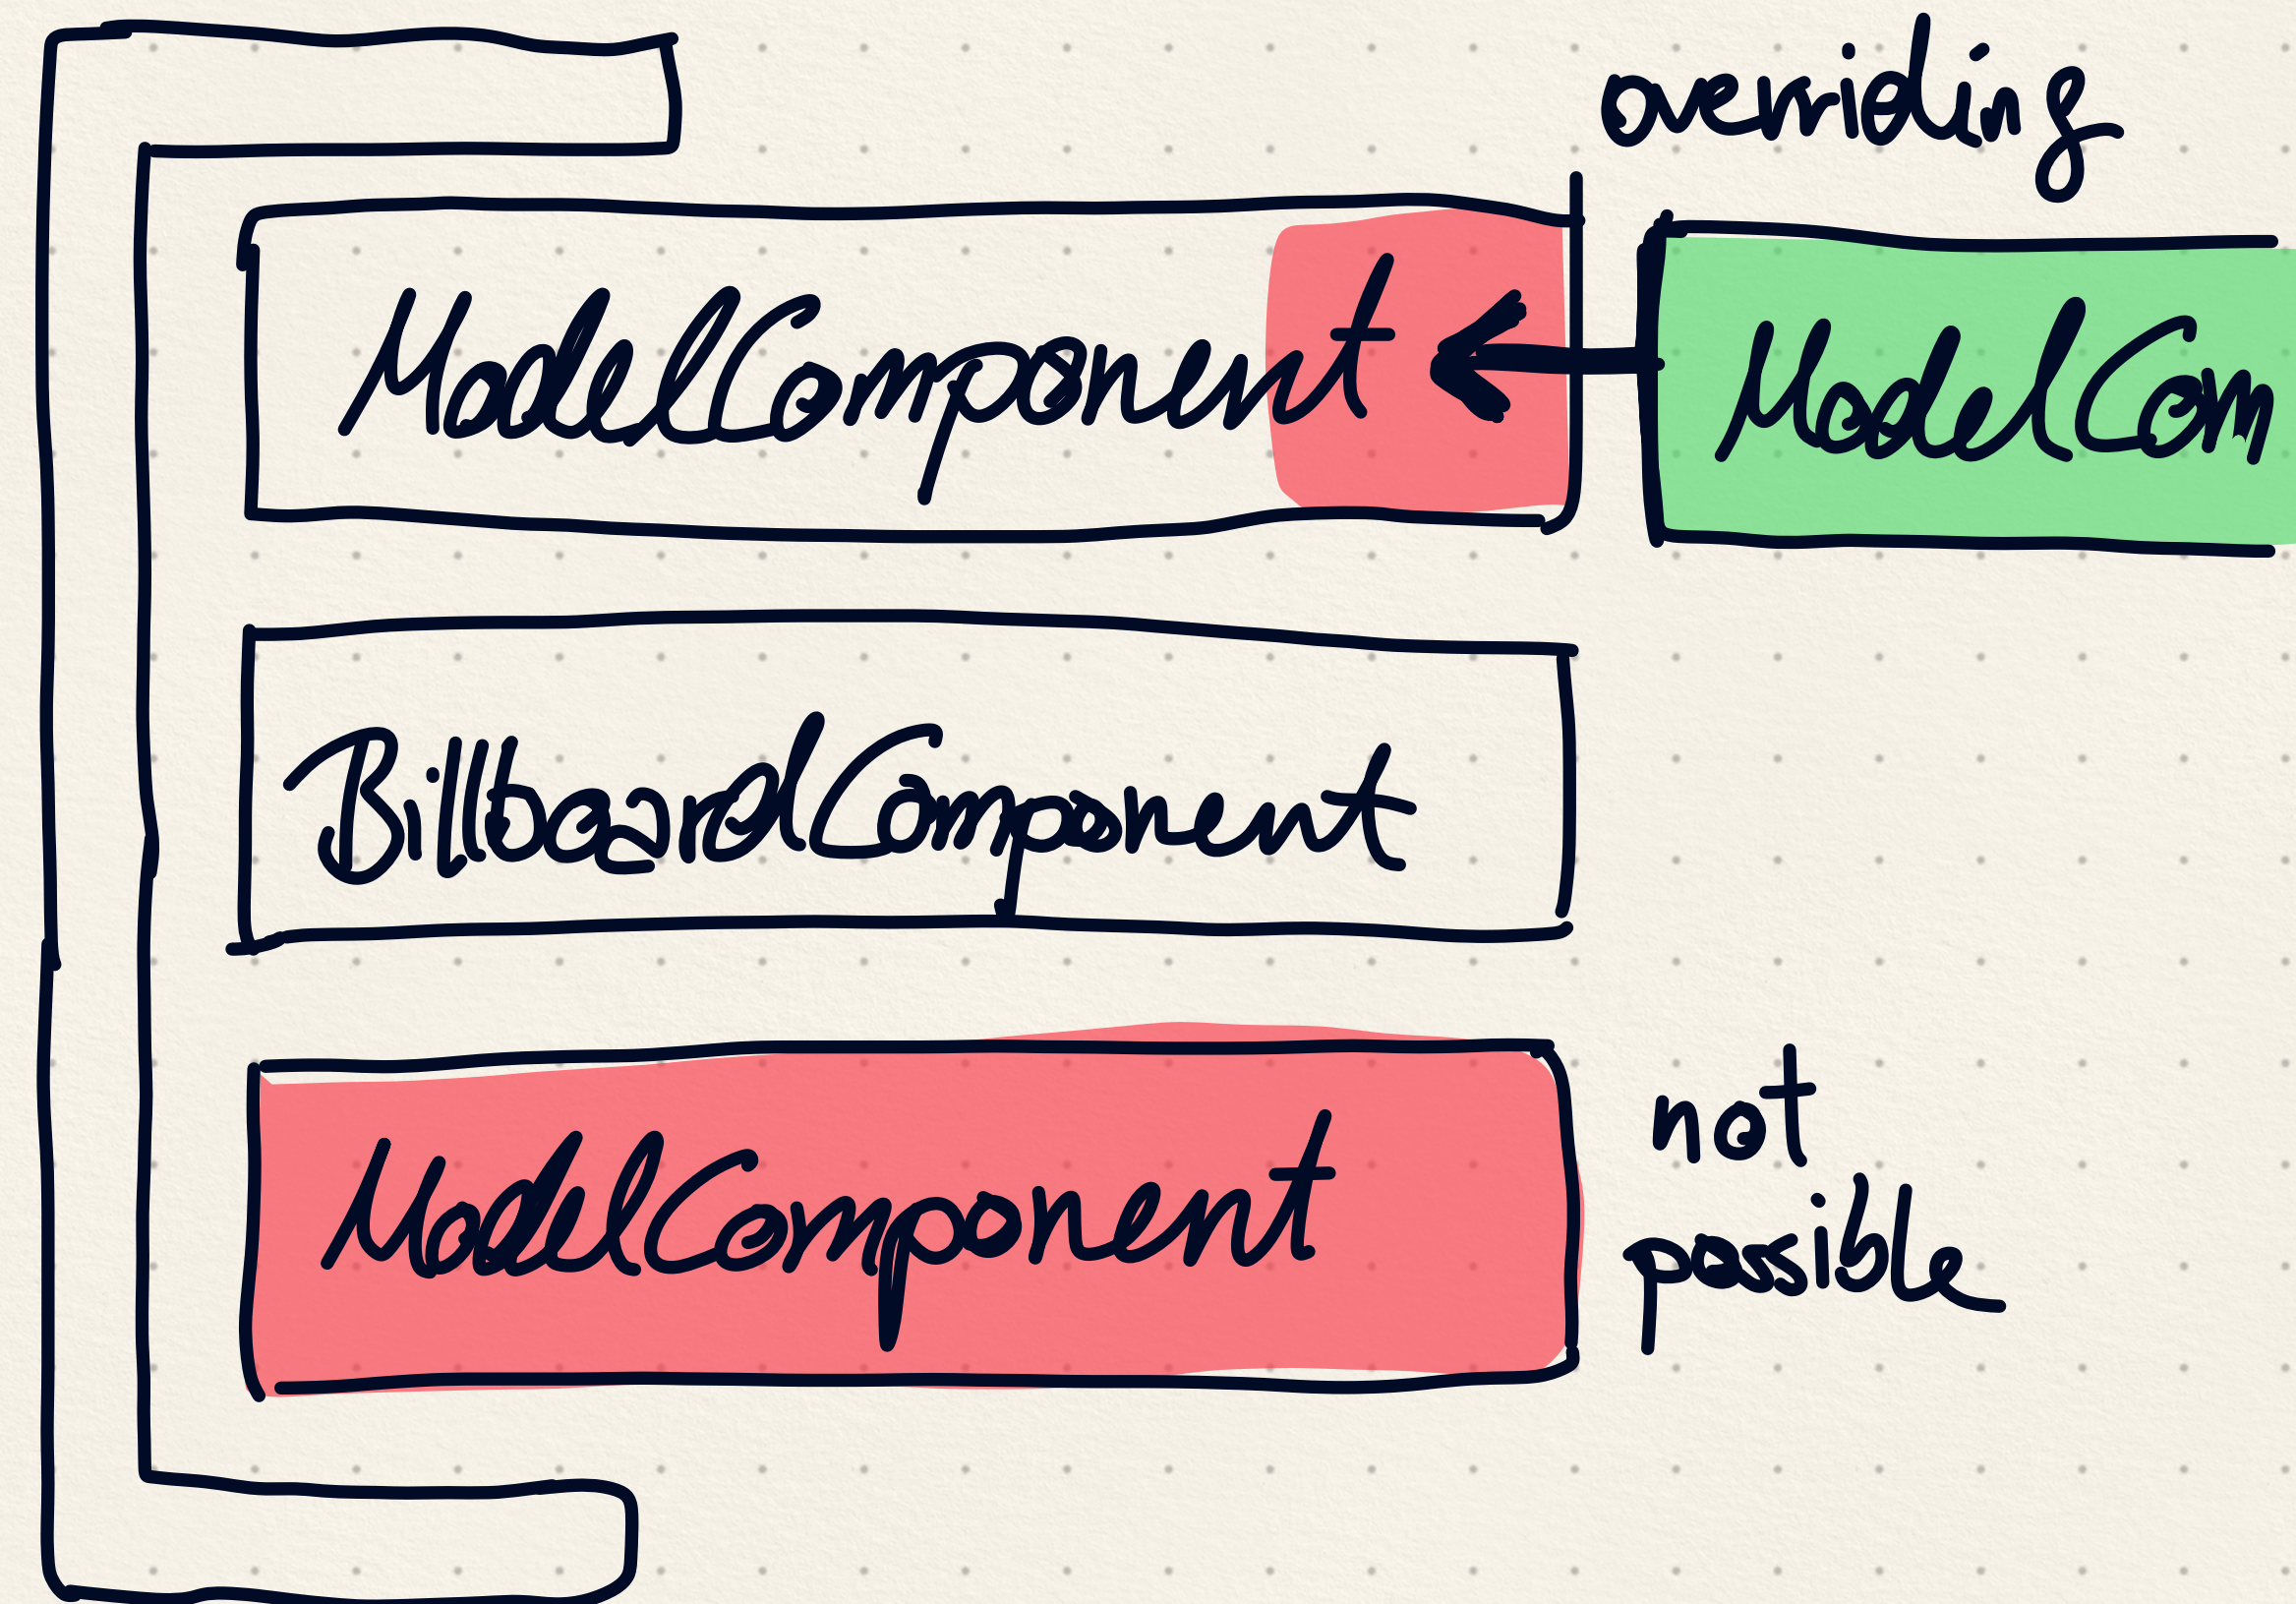 overriding
ModelComponent
ModelCom
BillboardComponent
ModelComponent
not
possible